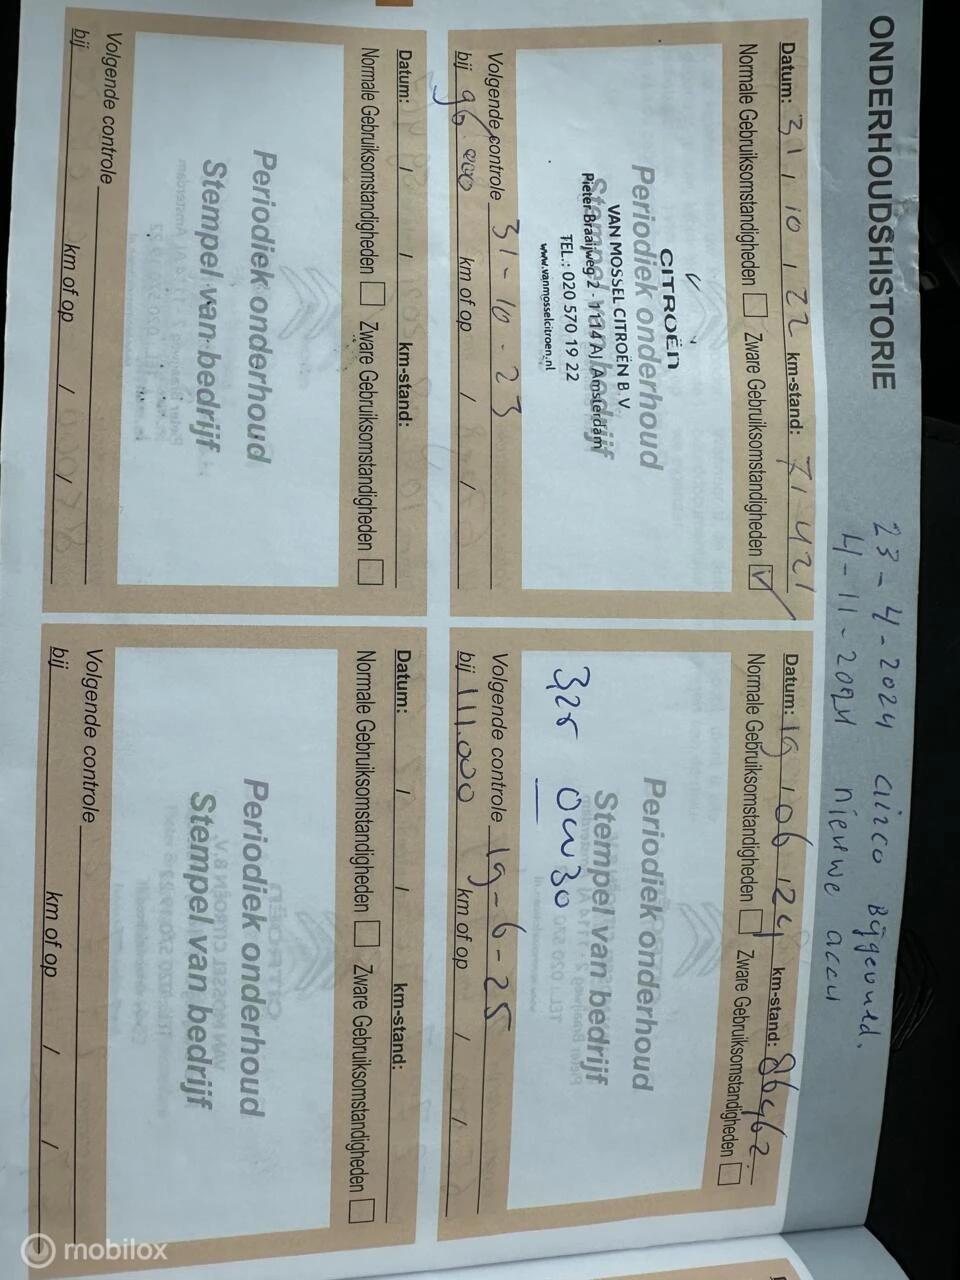 ONDERHOUDSHISTORIE
23-4-2024 airco Bijgevuld.
4-11-2024 nieuwe accu
Datum: 31 / 10 / 22 km-stand: 71421
Normale Gebruiksomstandigheden Zware Gebruiksomstandigheden
CITROËN
Periodiek onderhoud
VAN MOSSEL CITROËN B.V.
Stempel van bedrijf
Pieter Braaijweg 2 - 1114 AJ Amsterdam
TEL.: 020 570 19 22
www.vanmosselcitroen.nl
Volgende controle 31-10-23
bij 96.000 km of op / /
Datum: 19 / 06 / 24 km-stand: 86462
Normale Gebruiksomstandigheden Zware Gebruiksomstandigheden
Periodiek onderhoud
Stempel van bedrijf
0W30
Volgende controle 19-6-25
bij 111.000 km of op / /
Datum: / / km-stand:
Normale Gebruiksomstandigheden Zware Gebruiksomstandigheden
Periodiek onderhoud
Stempel van bedrijf
Volgende controle
bij km of op / /
Datum: / / km-stand:
Normale Gebruiksomstandigheden Zware Gebruiksomstandigheden
Periodiek onderhoud
Stempel van bedrijf
Volgende controle
bij km of op / /
mobilox